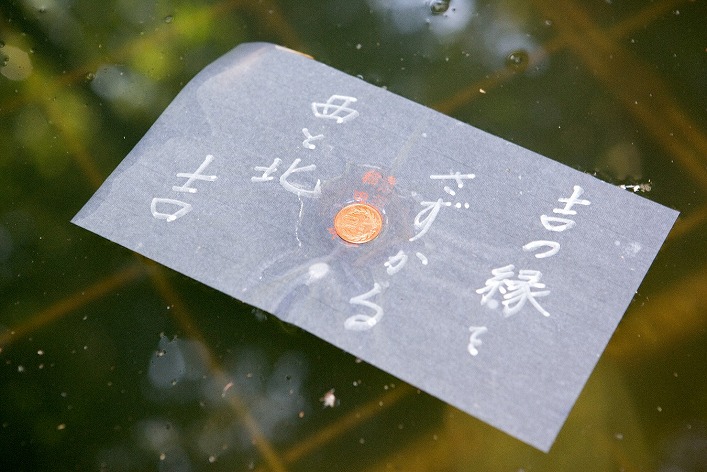 吉の縁を
さずかる
西と北
吉